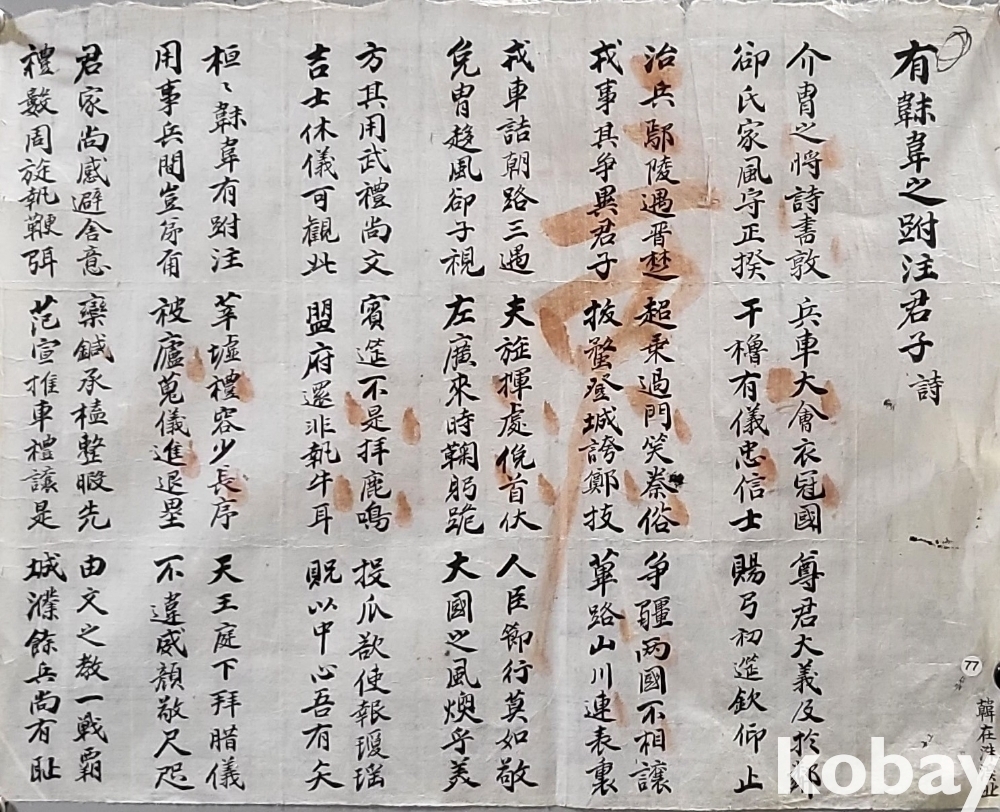 有韎韋之跗注君子 詩
介冑之將詩書敦 兵車大會衣冠國 尊君大義及於鄰
卻氏家風守正揆 干櫓有儀忠信士 賜弓初筵欽仰止
治兵鄢陵遇晋楚 超乘過門笑秦俗 爭疆兩國不相讓
戎事其爭異君子 拔蝥登城誇鄭技 蓽路山川連表裏
戎車詰朝路三遇 夫旌揮處俛首伏 人臣節行莫如敬
免冑趍風卻子視 左廣來時鞠躬跪 大國之風燠乎美
方其用武禮尚文 賓筵不是拜鹿鳴 投瓜欲使報瓊瑤
吉士休儀可觀此 盟府還非執牛耳 貺以中心吾有矢
桓〻韎韋有跗注 莘墟禮容少長序 天王庭下拜腊儀
用事兵間豈 被廬蒐儀進退壘 不違威顔敬尺咫
君家尚感避舍意 欒鍼承榼整暇先 由文之教一戰霸
禮數周旋執鞭弭 范宣推車禮讓是 城濮餘兵尚有恥
77
韓在
kobay